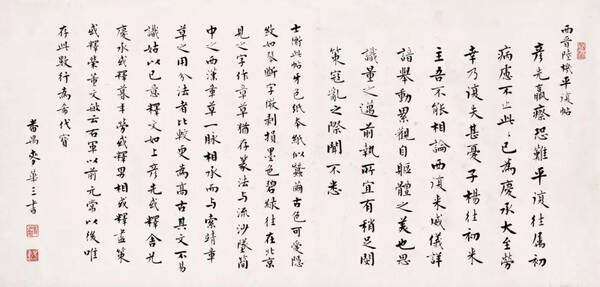 西晉陸機平復帖
彥先羸瘵恐難平復往屬初
病慮不止此〻已為慶承大至勞
幸乃復夫甚憂子楊往初來
主吾不能相論西復來威儀詳
諳舉動累觀自軀體之美也思
識量之邁前執所宜有稍足閔
策寇亂之際聞不悉
士衡此帖牙色紙本紙似蠶繭古色可愛隱
致如琴斷字微剝損墨色碧綠往在北京
見之字作章草猶存篆法與流沙墜簡
中之西漢章草一脈相承而與索靖章
草之用分法者比較更為高古其文不易
識姑以己意釋文如上彥先或釋舍光
慶承或釋棗丰勞或釋男相或釋盡策
或釋棨董文敏云右軍以前元常以後唯
存此數行為希代寶
番禺麥華三書